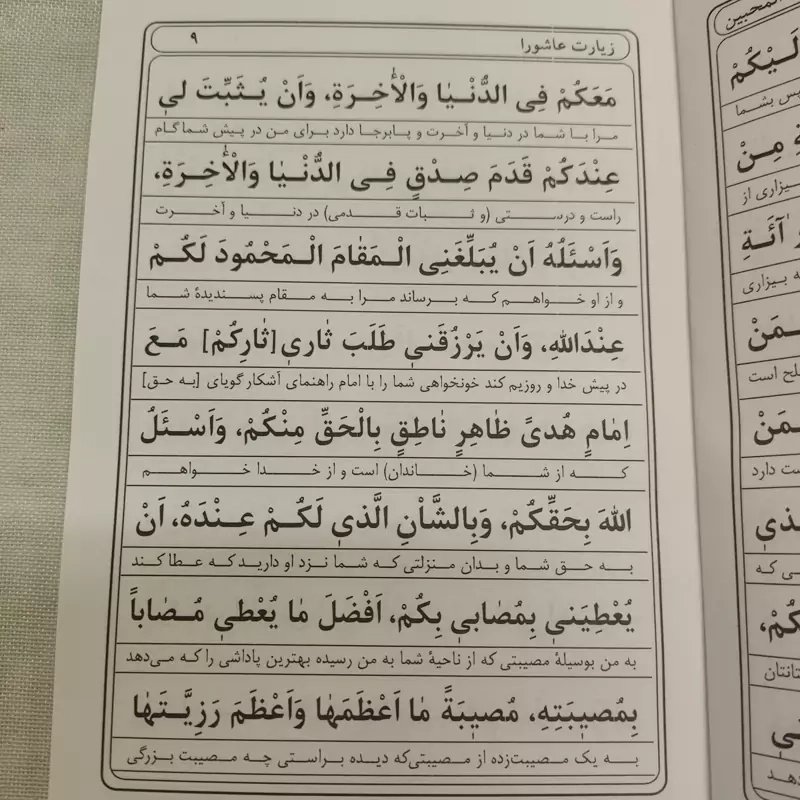 زیارت عاشورا ۹
مَعَكُمْ فِی الدُّنْیٰا وَالْأٰخِرَةِ، وَاَنْ یُثَبِّتَ لی
مرا با شما در دنیا و آخرت و پابرجا دارد برای من در پیش شما گام
عِنْدَكُمْ قَدَمَ صِدْقٍ فِی الدُّنْیٰا وَالْأٰخِرَةِ،
راست و درستی (و ثبات قدمی) در دنیا و آخرت
وَاَسْئَلُهُ اَنْ یُبَلِّغَنِی الْمَقٰامَ الْمَحْمُودَ لَكُمْ
و از او خواهم که برساند مرا به مقام پسندیدۀ شما
عِنْدَاللهِ، وَاَنْ یَرْزُقَنی طَلَبَ ثٰاری [ثٰارِكُمْ] مَعَ
در پیش خدا و روزیم کند خونخواهی شما را با امام راهنمای آشکار گویای [به حق]
اِمٰامٍ هُدیً ظٰاهِرٍ نٰاطِقٍ بِالْحَقِّ مِنْكُمْ، وَاَسْئَلُ
که از شما (خاندان) است و از خدا خواهم
اللهَ بِحَقِّكُمْ، وَبِالشَّاْنِ الَّذی لَكُمْ عِنْدَهُ، اَنْ
به حق شما و بدان منزلتی که شما نزد او دارید که عطا کند
یُعْطِیَنی بِمُصٰابی بِكُمْ، اَفْضَلَ مٰا یُعْطی مُصٰاباً
به من بوسیلۀ مصیبتی که از ناحیۀ شما به من رسیده بهترین پاداشی را که می‌دهد
بِمُصیبَتِهِ، مُصیبَةً مٰا اَعْظَمَهٰا وَاَعْظَمَ رَزِیَّتَهٰا
به یک مصیبت‌زده از مصیبتی‌که دیده براستی چه مصیبت بزرگی